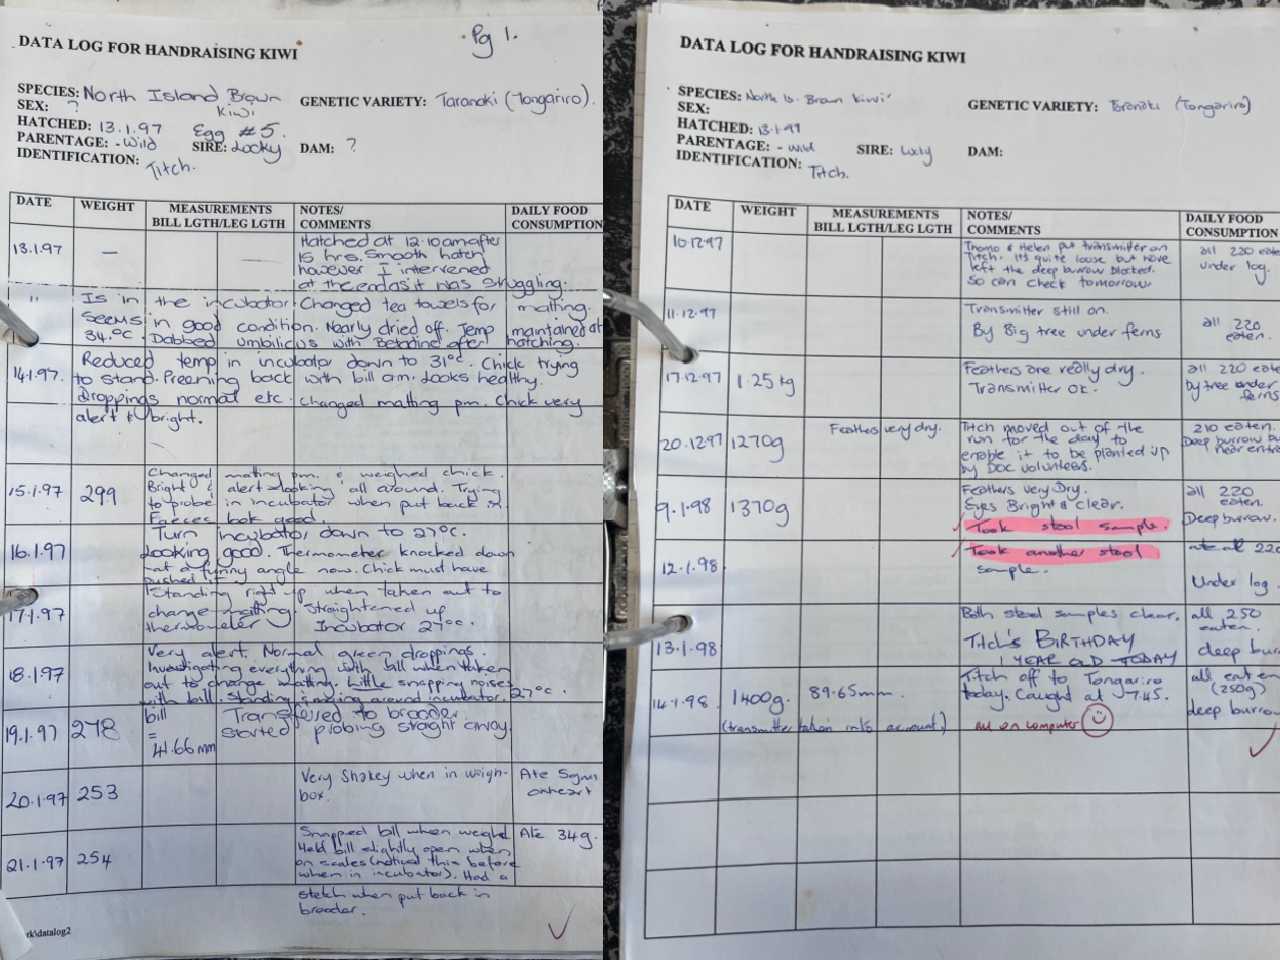 Pg 1.
DATA LOG FOR HANDRAISING KIWI
SPECIES: North Island Brown Kiwi
GENETIC VARIETY: Taranaki (Tongariro).
SEX: ?
HATCHED: 13.1.97 Egg #5.
PARENTAGE: - Wild SIRE: Locky DAM: ?
IDENTIFICATION: Titch.
DATE WEIGHT MEASUREMENTS BILL LGTH/LEG LGTH NOTES/ COMMENTS DAILY FOOD CONSUMPTION
13.1.97 — — Hatched at 12.10am after
15 hrs. Smooth hatch
however I intervened
at the end as it was struggling.
" Is in the incubator. Changed tea towels for matting.
Seems in good condition. Nearly dried off. Temp maintained at
34.°C. Dabbed umbilicus with Betadine after hatching.
14.1.97. Reduced temp in incubator down to 31°C. Chick trying
to stand. Preening back with bill am. Looks healthy.
Droppings normal etc. Changed matting pm. Chick very
alert & bright.
15.1.97 299 Changed matting pm. & weighed chick.
Bright & alert looking all around. Trying
to probe in incubator when put back in.
Faeces look good.
16.1.97 Turn incubator down to 27°C.
Looking good. Thermometer knocked down
at a funny angle now. Chick must have
pushed it.
17.1.97 Standing right up when taken out to
change matting. Straightened up
thermometer Incubator 27°C.
18.1.97 Very alert. Normal green droppings.
Investigating everything with bill when taken
out to change matting. Little snapping noises
with bill. Standing & moving around incubator. 27°C.
19.1.97 278 bill = 41.66mm Transferred to brooder.
started probing straight away
20.1.97 253 Very Shakey when in weigh-
box. Ate 5gm oxheart
21.1.97 254 Snapped bill when weighed Ate 34g.
Held bill slightly open when
on scales (noticed this before
when in incubator). Had a
stetch when put back in
brooder.
rk\datalog2
DATA LOG FOR HANDRAISING KIWI
SPECIES: North Is. Brown Kiwi
GENETIC VARIETY: Taranaki (Tongariro)
SEX:
HATCHED: 13.1.97
PARENTAGE: - Wild SIRE: Locky DAM:
IDENTIFICATION: Titch.
DATE WEIGHT MEASUREMENTS BILL LGTH/LEG LGTH NOTES/ COMMENTS DAILY FOOD CONSUMPTION
10.12.97 & Helen put transmitter on all 220 eaten
Titch. It's quite loose but have under log.
left the deep burrow blocked.
So can check tomorrow
11.12.97 Transmitter still on. all 220
By Big tree under ferns eaten.
17.12.97 1.25kg Feathers are really dry. all 220 eaten
Transmitter ok. by tree under ferns
20.12.97 1270g Feathers very dry. Titch moved out of the 210 eaten.
run for the day to Deep burrow
enable it to be planted up near
by DOC volunteers.
9.1.98 1370g Feathers very Dry. all 220
Eyes Bright & Clear. eaten.
Took stool sample. Deep burrow.
12.1.98 Took another stool ate all 220
sample. Under log
13.1.98 Both stool samples clear. all 250
eaten.
TITCH'S BIRTHDAY deep burrow
1 YEAR OLD TODAY
14.1.98. 1400g. 89.65mm. Titch off to Tongariro all eaten
today. Caught at 7.45. (250g)
deep burrow
(transmitter taken into account) all on computer